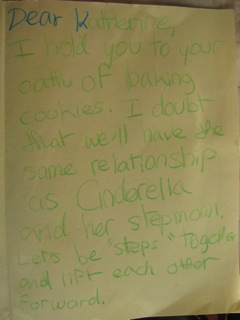 Dear Katherine,
I hold you to your
oath of baking
cookies. I doubt
that we'll have the
same relationship
as Cinderella
and her stepmom.
Let's be "steps" together
and lift each other
forward.